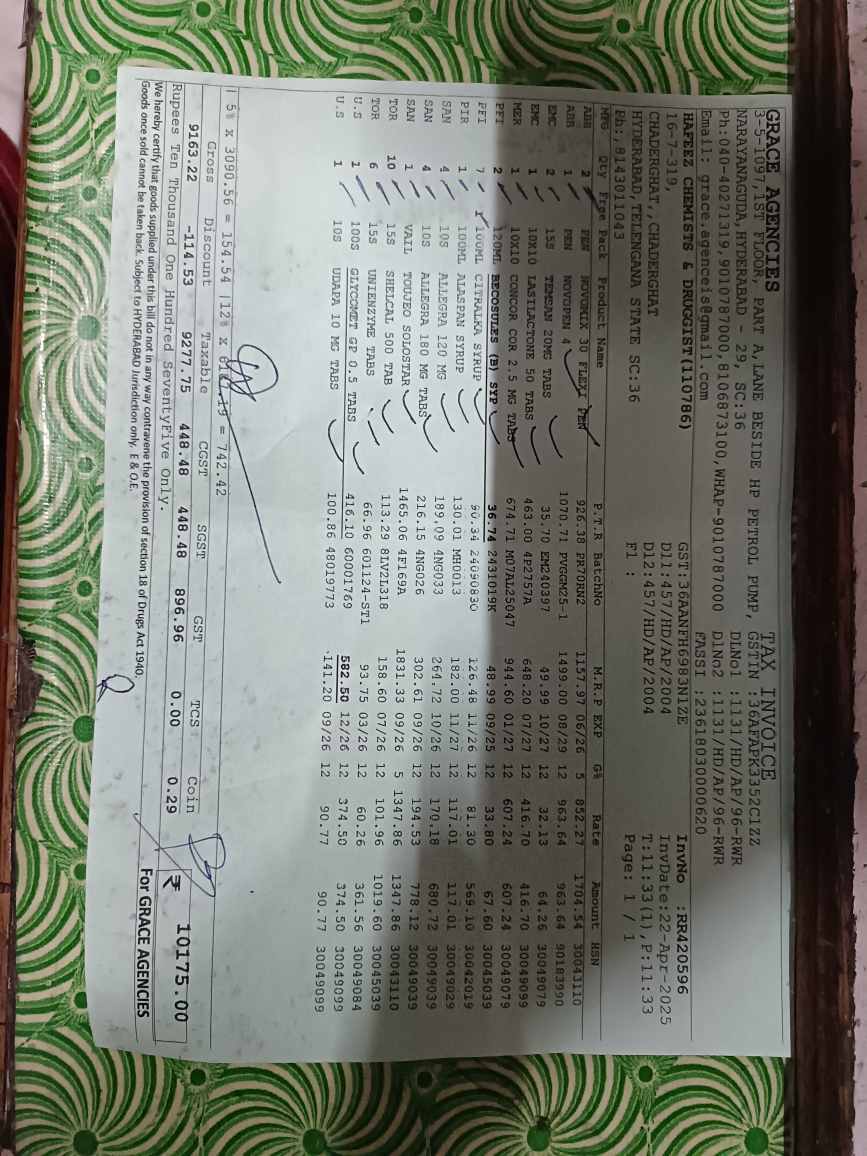 GRACE AGENCIES TAX INVOICE
3-5-1097,1ST FLOOR, PART A,LANE BESIDE HP PETROL PUMP, GSTIN :36AFAPK3352C1ZZ
NARAYANAGUDA,HYDERABAD - 29, SC:36 DLNo1 :1131/HD/AP/96-RWR
Ph:040-40271319,9010787000,8106873100,WHAP-9010787000 DlNo2 :1131/HD/AP/96-RWR
Email: grace.agenceis@gmail.com FASSI :23618030000620
HAFEEZ CHEMISTS & DRUGGIST(110786) GST:36AANFH6983N1ZE InvNo :RR420596
16-7-319, Dl1:457/HD/AP/2004 InvDate:22-Apr-2025
CHADERGHAT,,CHADERGHAT Dl2:457/HD/AP/2004 T:11:33(1),P:11:33
HYDERABAD,TELENGANA STATE SC:36 Fl : Page: 1 / 1
Ph:,8143011043
MFG Qty Free Pack Product Name P.T.R BatchNo M.R.P EXP G% Rate Amount HSN
ABS 2 PEN NOVOMIX 30 FLEXI PEN 926.38 PR70RN2 1157.97 06/26 5 852.27 1704.54 30043110
ABB 1 PEN NOVOPEN 4 1070.71 PVGGM25-1 1499.00 08/29 12 963.64 963.64 90183990
EMC 2 15S TEMSAN 20MG TABS 35.70 EM240397 49.99 10/27 12 32.13 64.26 30049079
EMC 1 10X10 LASILACTONE 50 TABS 463.00 4P2757A 648.20 07/27 12 416.70 416.70 30049099
MER 1 10X10 CONCOR COR 2.5 MG TABS 674.71 M07AL25047 944.60 01/27 12 607.24 607.24 30049079
PFI 2 120ML BECOSULES (B) SYP 36.74 2431019K 48.99 09/25 12 33.80 67.60 30045039
PFI 7 1 100ML CITRALKA SYRUP 90.34 24090830 126.48 11/26 12 81.30 569.10 30042019
PIR 1 100ML ALASPAN SYRUP 130.01 MH0013 182.00 11/27 12 117.01 117.01 30049029
SAN 4 10S ALLEGRA 120 MG 189.09 4NG033 264.72 10/26 12 170.18 680.72 30049039
SAN 4 10S ALLEGRA 180 MG TABS 216.15 4NG026 302.61 09/26 12 194.53 778.12 30049039
SAN 1 VAIL TOUJEO SOLOSTAR 1465.06 4F169A 1831.33 09/26 5 1347.86 1347.86 30043110
TOR 10 15S SHELCAL 500 TAB 113.29 8LV2L318 158.60 07/26 12 101.96 1019.60 30045039
TOR 6 15S UNIENZYME TABS 66.96 601124-ST1 93.75 03/26 12 60.26 361.56 30049084
U.S 1 100S GLYCOMET GP 0.5 TABS 416.10 60001769 582.50 12/26 12 374.50 374.50 30049099
U.S 1 10S UDAPA 10 MG TABS 100.86 48019773 141.20 09/26 12 90.77 90.77 30049099
| 5% x 3090.56 = 154.54 |12% x 6187.19 = 742.42
Gross Discount Taxable CGST SGST GST TCS Coin
9163.22 -114.53 9277.75 448.48 448.48 896.96 0.00 0.29 ₹ 10175.00
Rupees Ten Thousand One Hundred SeventyFive Only.
We hereby certify that goods supplied under this bill do not in any way contravene the provision of section 18 of Drugs Act 1940. For GRACE AGENCIES
Goods once sold cannot be taken back. Subject to HYDERABAD Jurisdiction only. E & O.E.